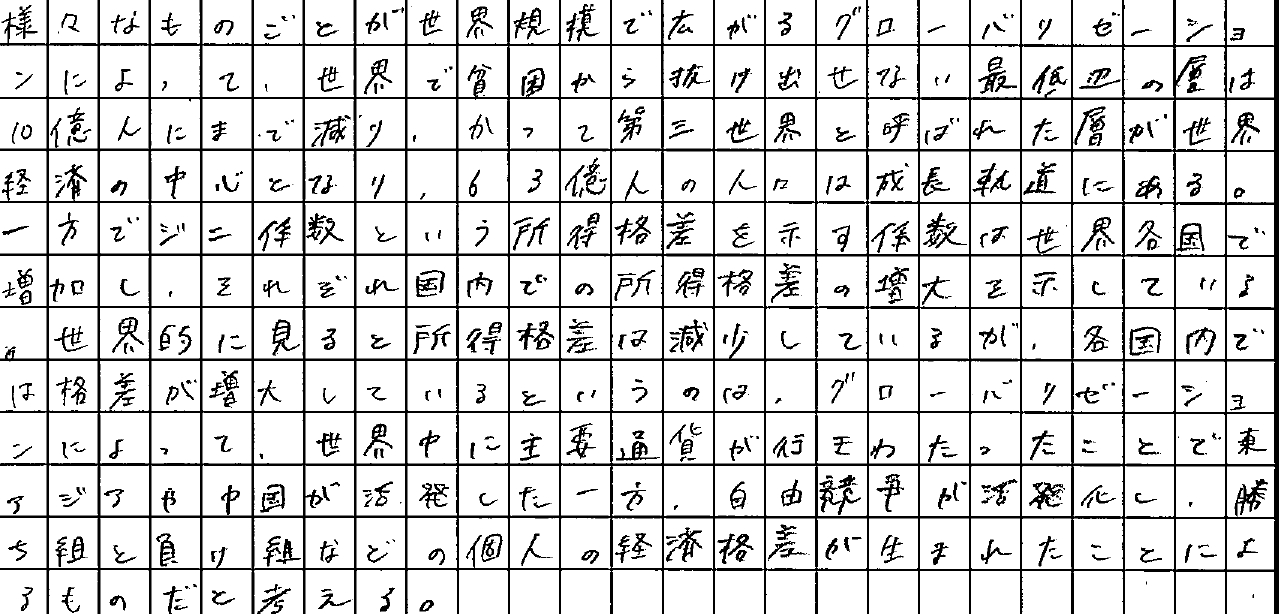 様々なものごとが世界規模で広がるグローバリゼーショ
ンによって、世界で貧困から抜け出せない最低辺の層は
10億人にまで減り、かつて第三世界と呼ばれた層が世界
経済の中心となり、63億人の人口は成長軌道にある。
一方でジニ係数という所得格差を示す係数は世界各国で
増加し、それぞれ国内での所得格差の増大を示している
。世界的に見ると所得格差は減少しているが、各国内で
は格差が増大しているというのは、グローバリゼーショ
ンによって、世界中に主要通貨が行きわたったことで東
アジアや中国が活発した一方、自由競争が活発化し、勝
ち組と負け組などの個人の経済格差が生まれたことによ
るものだと考える。